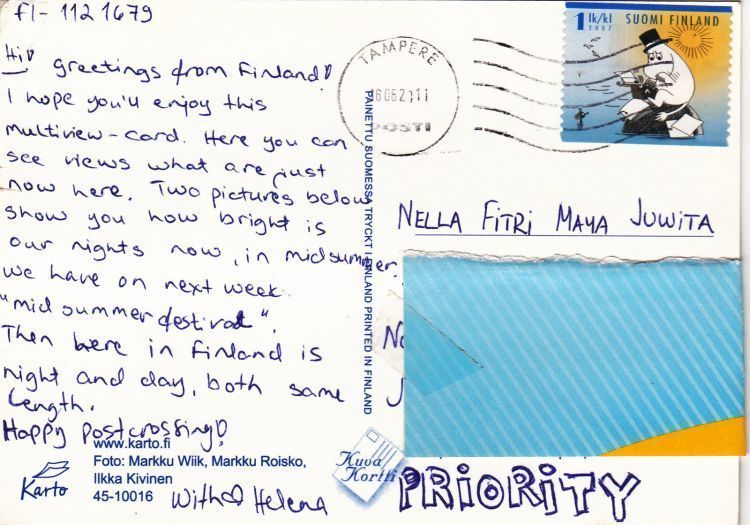 FI-1121679
Hi! greetings from Finland!
I hope you'll enjoy this
multiview-card. Here you can
see views what are just
now here. Two pictures below
show you how bright is
our nights now, in midsummer.
we have on next week
"midsummer festival".
Then here in Finland is
night and day, both same
length.
Happy postcrossing!
www.karto.fi
Foto: Markku Wiik, Markku Roisko,
Ilkka Kivinen
45-10016
Karto
With Helena
PAINETTU SUOMESSA TRYCKT I FINLAND PRINTED IN FINLAND
Kuva
Kortti
TAMPERE
POSTI
1 lk/kl
2007
SUOMI FINLAND
NELLA FITRI MAYA JUWITA
PRIORITY